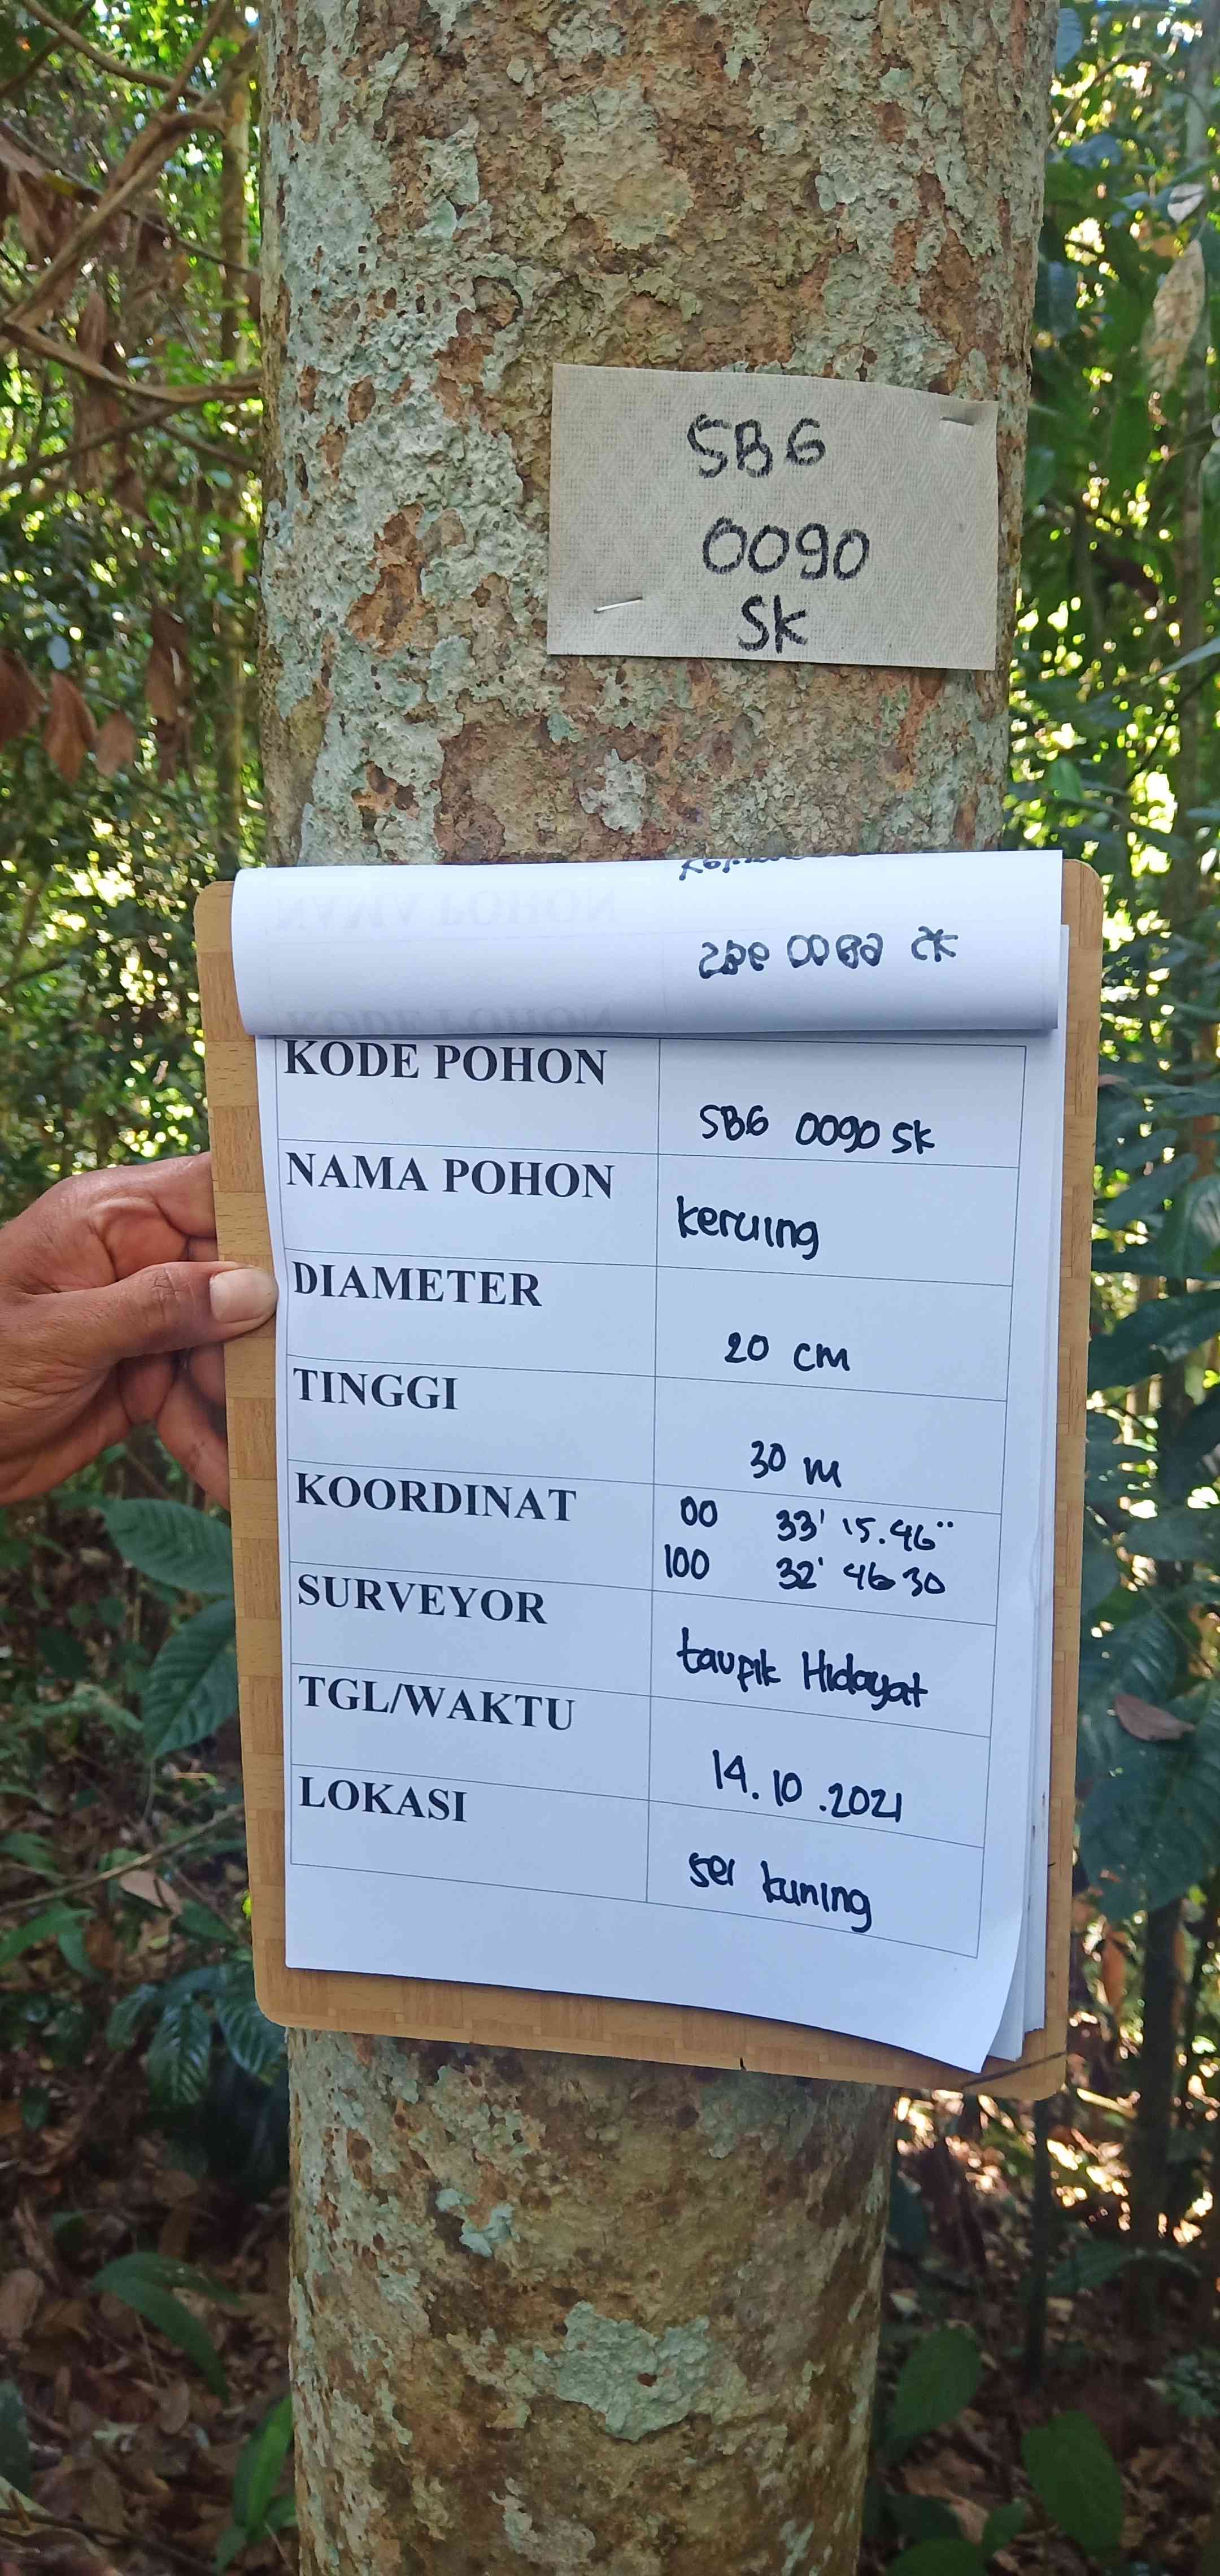 SBG
0090
SK
KODE POHON
SBG 0090 SK
NAMA POHON
keruing
DIAMETER
20 cm
TINGGI
30 m
KOORDINAT
00 33' 15.46"
100 32' 46 30
SURVEYOR
taupik Hidayat
TGL/WAKTU
14.10.2021
LOKASI
sei kuning